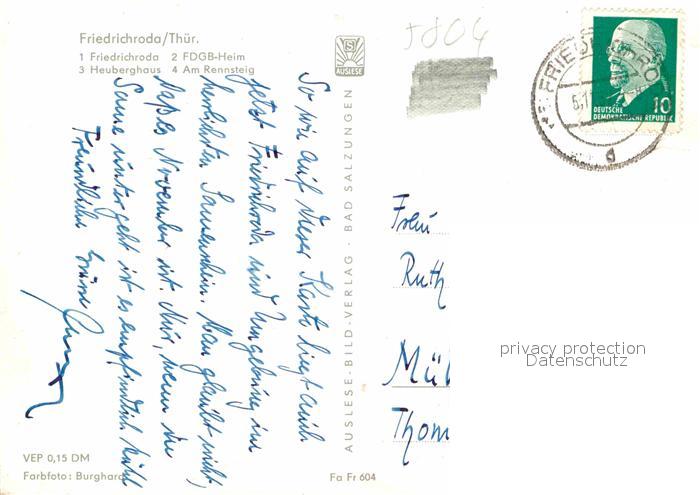 Friedrichroda/Thür.
1 Friedrichroda 2 FDGB-Heim
3 Heuberghaus 4 Am Rennsteig
AUSLESE
5804
FRIEDRICHRO
DEUTSCHE
DEMOKRATISCHE REPUBLIK
10
So wie auf dieser Karte liegt auch
jetzt Friedrichroda und Umgebung im
herrlichsten Sonnenschein. Man glaubt nicht,
daß es November ist. Nur, wenn die
Sonne untergeht ist es empfindlich kühl
Freundliche Grüße
AUSLESE-BILD-VERLAG · BAD SALZUNGEN
Frau
Ruth
Mül
Thom
privacy protection
Datenschutz
VEP 0,15 DM
Farbfoto: Burghardt
Fa Fr 604